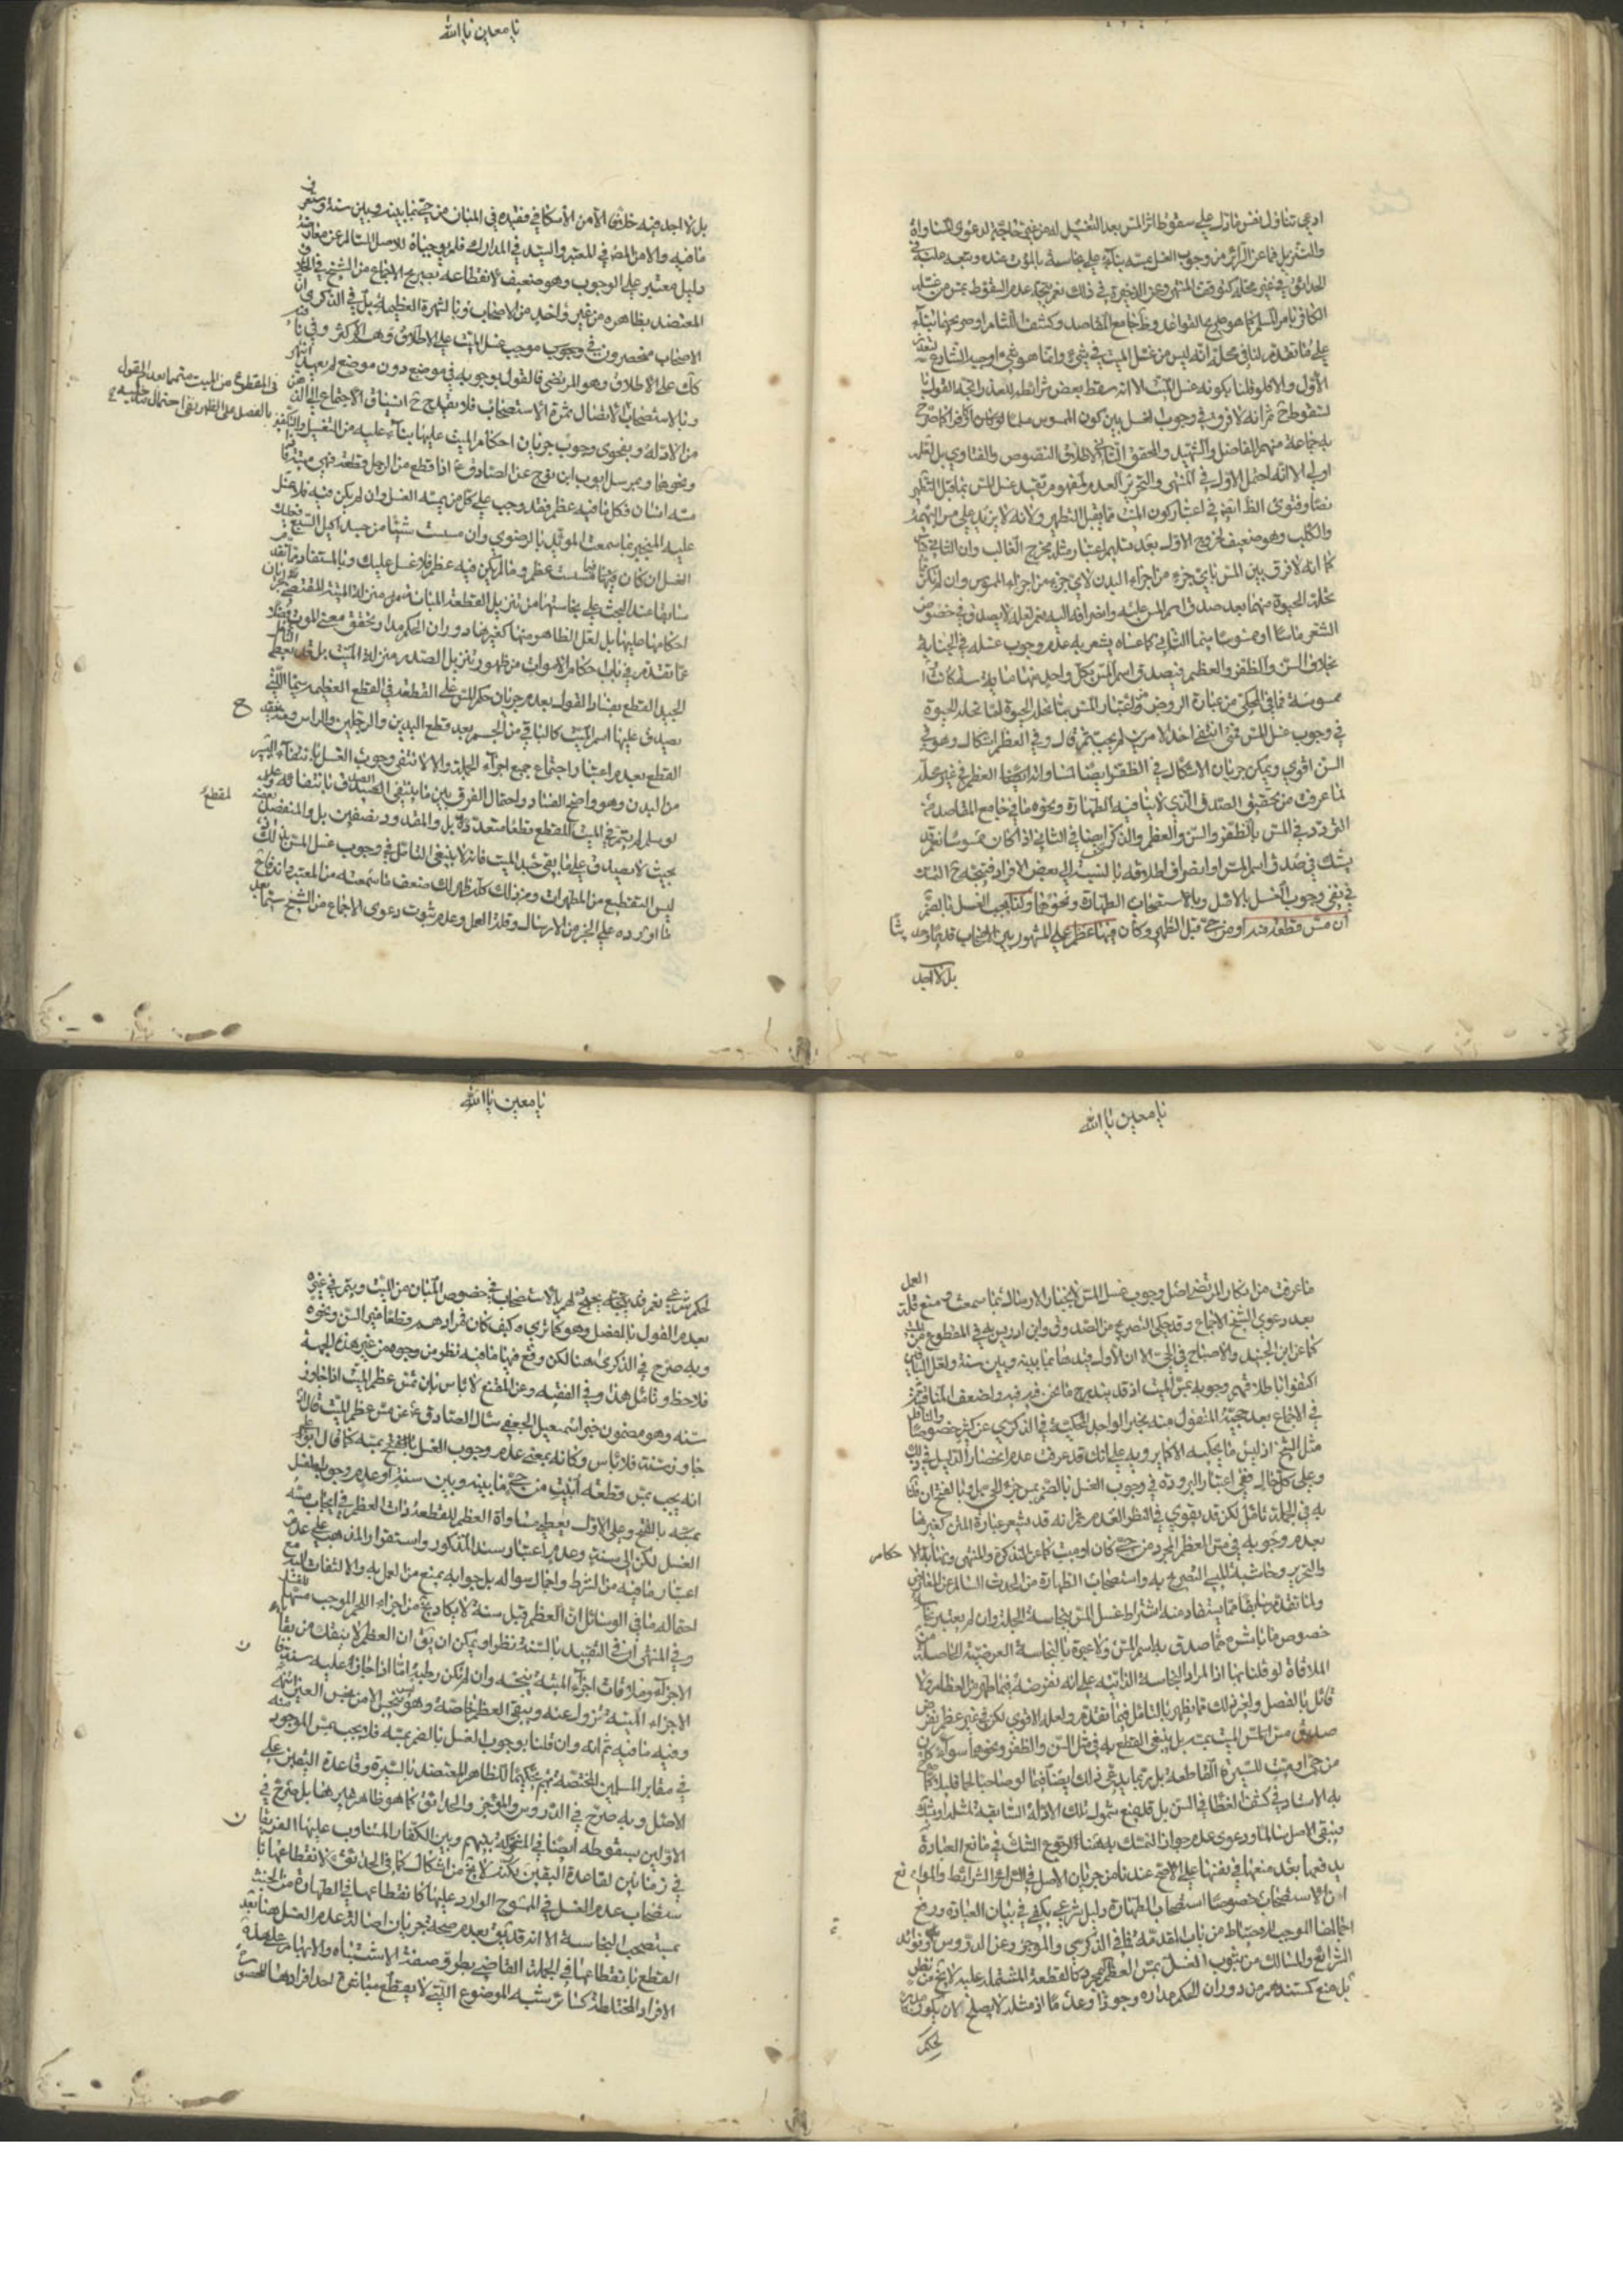 ادعى تناول نفس مادل على سقوط اثر المس بعد التغسيل له من غير حاجة لدعوى المساواة
والتنزيل فما عن السرائر من وجوب الغسل بمسه بناء على نجاسته بالموت عنده
الحدائق في غير محله كتوقف المنتهى وعن الذخيرة في ذلك نعم يتجه عدم السقوط بمس من غسله
الكافر بامر المسلم كما هو صريح القواعد وظ جامع المقاصد وكشف اللثام او صريحهما بناء
على ما تقدم لنا في محله انه ليس من غسل الميت في شيء وانما هو شيء اوجبه الشارع
الاول والا فلو قلنا بكونه غسل الميت الا انه سقط بعض شرائطه للتعذر اتجه القول بالسقوط ح
ثم انه لا فرق في وجوب الغسل بين كون الممسوس مسلما او كافرا كما صرح
به جماعة منهم الفاضل والشهيد والمحقق الثاني لاطلاق النصوص والفتاوي بل لعله
اولى الا انه احتمل الاول في المنتهى والتحرير العدم لمفهوم تقييد غسل المس بما قبل التطهير
نصا وفتوى الظاهر في اعتبار كون الميت مما يقبل التطهير ولانه لا يزيد على مس البهيمة
والكلب وهو ضعيف لخروج الاول بعد تسليم اعتبار مثله مخرج الغالب وان الثاني قياس
كما انه لا فرق بين المس باي جزء من اجزاء البدن لاي جزء من اجزاء الممسوس وان لم تكن
تحله الحيوة منهما بعد صدق اسم المس عليه وانصرافه اليه نعم لعله لا يصدق في خصوص
الشعر ماسا او ممسوسا سيما الثاني كما عساه يشعر به عدم وجوب غسله في الجنابة
بخلاف السن والظفر والعظم فيصدق اسم المس بكل واحد منها
ممسوسة فما في المحكي من عبارة الروض من اعتبار المس بما تحله الحيوة لما تحله الحيوة
في وجوب غسل المس فمتى انتفى احد الامرين لم يجب ثم قال وفي العظم اشكال وهو في
السن اقوى ويمكن جريان الاشكال في الظفر ايضا
لما عرفت من تحقق الصدق الذي لا ينافيه الطهارة ونحوه ما في جامع المقاصد من
التردد في المس بالظفر والسن والعظم والذكرى ايضا في الثاني اذا كان ممسوسا نعم قد
يشك في صدق اسم المس او انصراف اطلاقه بالنسبة الى بعض الافراد فيتجه ح التمسك
في نفي وجوب الغسل بالاصل وبالاستصحاب الطهارة ونحوهما وكذا يجب الغسل بالضم
ان مس قطعة منه او من حي قبل التطهير وكان فيها عظم على المشهور بين الاصحاب قديما وحديثا
بل لا اجد
يا معين يا الله
بل لا اجد فيه خلافا الا من الاسكافي فقيده في المبان من حي بما بينه وبين سنة وستعرف
ما فيه والا من المص في المعتبر والسيد في المدارك فلم يوجباه للاصل السالم عن معارضة
دليل معتبر على الوجوب وهو ضعيف لانقطاعه بصريح الاجماع من الشيخ في الخلاف
المعتضد بظاهره من غير واحد من الاصحاب وبالشهرة العظيمة بل في الذكرى ان
الاصحاب منحصرون في وجوب موجب غسل الميت على الاطلاق وهم الاكثر وفي نافيه
كك على الاطلاق وهو المرتضى فالقول بوجوبه في موضع دون موضع لم يعهد انتهى
وبالاستصحاب
في المقطوع من الميت متمما بعدم القول
بالفصل على الظاهر
من الادلة وبفحوى وجوب جريان احكام الميت عليها بناء عليه من التغسيل والتكفين
ونحوهما وبمرسل ايوب ابن نوح عن الصادق ع اذا قطع من الرجل قطعة فهي ميتة فاذا
مسه انسان فكل ما فيه عظم فقد وجب على كل من يمسه الغسل وان لم يكن فيه فلا غسل
عليه المنجبر بما سمعت المؤيد بالرضوي وان مسست شيئا من جسد اكيل السبع فعليك
الغسل ان كان فيما مسست عظم وما لم يكن فيه عظم فلا غسل عليك وبالمستفاد مما تقدم
سابقا عند البحث على نجاستها من تنزيل القطعة المبانة منزلة الميتة المقتضي جريان
احكامها عليها بل لعل الظاهر منها كغيرها دوران الحكم مدار تحقق معنى الموت
مما تقدم في باب احكام الاموات من ظهور تنزيل الصدر منزلة الميت بل قد يعطي التامل
الجيد القطع بفساد القول بعدم جريان حكم المس على القطعة في القطع العظيمة سيما التي
يصدق عليها اسم الميت كالباقي من الجسم بعد قطع اليدين والرجلين والراس
القطع بعدم اعتبار اجتماع جميع اجزاء الجملة والا لانتفى وجوب الغسل بانتفاء اليسير
من البدن وهو واضح الفساد واحتمال الفرق بين ما ينتفي الصدق بانتفائه وعدمه
لو سلم لم يتم في الميت المقطع قطعا متعددة بل والمقدود نصفين بل والمنفصل بعضه
بحيث لا يصدق على ما بقي جسد الميت فانه لا ينبغي التامل في وجوب غسل المس بذلك
ليس التقطيع من المطهرات ومن ذلك كله ظهر لك ضعف ما سمعته من المعتبر واندفاع
ما اورده على الخبر من الارسال وقلة العمل وعدم ثبوت دعوى الاجماع من الشيخ سيما بعد
يا معين يا الله
ما عرفت من انكار المرتضى اصل وجوب غسل المس لانجبار الارسال بما سمعت ومنع قلة العمل
بعد دعوى الشيخ الاجماع وقد حكى التصريح عن الصدوق وابن ادريس به في المقطوع من
كما عن ابن الجنيد والاصباح في الحي الا ان الاول قيدها بما بينه وبين سنة ولعل الباقين
اكتفوا باطلاقهم وجوبه بمس الميت اذ قد يندرج ما نحن فيه فيه واضعف
في الاجماع بعدم حجية المنقول منه بخبر الواحد المحكية في الذكرى عن كثير خصوصا
مثل الشيخ اذ ليس ما يحكيه الا كما يرويه على انك قد عرفت عدم انحصار الدليل في ذلك
وعلى كل حال ففي اعتبار البرودة في وجوب الغسل بالضم بمس جزء الحي
به في الجملة تامل لكن قد يقوى في النظر العدم ثم انه قد يشعر عبارة المتن كغيرها
بعدم وجوبه في مس العظم المجرد من حي كان او ميت كما عن التذكرة والمنتهى ونهاية الاحكام
والتحرير وحاشية التصريح به واستصحاب الطهارة من الحدث السالم عن المعارض
ولما تقدم سابقا مما يستفاد منه اشتراط غسل المس بنجاسة الجملة وان لم يعتبر نجاسة
خصوص ما باشره مما صدق به اسم المس ولا عبرة بالنجاسة العرضية الحاصلة من
الملاقاة لو قلنا بها اذ المراد النجاسة الذاتية على انه نفرضه فيما طهر من العظام ولا
قائل بالفصل ولغير ذلك مما يظهر بالتامل فيما تقدم ولعله الاقوى لكن في غير عظم يفرض
صدق مس الميت بمسه بل ينبغي القطع به في مثل السن والظفر ونحوهما سواء كان
من حي او ميت للسيرة القاطعة بل ربما يدعى ذلك ايضا فيما لو صاحبا لحما قليلا كما صرح
به الاستاد في كشف الغطاء في السن بل قد يمنع شمول تلك الادلة السابقة لمثله او يشك
فيبقى الاصل سالما ودعوى عدم جواز التمسك به هنا لرجوع الشك في مانع العبادة
يدفعها بعد منعها في نفسها على الاصح عندنا من جريان الاصل في الشرائط والموانع
ان الاستصحاب خصوصا استصحاب الطهارة دليل شرعي يكفي في بيان العبادة ورفع
اجمالها الموجب للاحتياط من باب المقدمة فما في الذكرى والموجز وعن الدروس وفوائد
الشرائع والمسالك من ثبوت الغسل بمس العظم المجرد كالقطعة المشتملة عليه لا يخ من نظر
بل منع كمستندهم من دوران الحكم مداره وجودا وعدما اذ مثله لا يصلح لان يكون مدركا
لحكم
يا معين يا الله
لحكم شرعي نعم قد يتجه لهم بالاستصحاب في خصوص المبان من الميت ويتم في غيره
بعدم القول بالفصل وهو كما ترى وكيف كان فمرادهم قطعا في السن ونحوه
وبه صرح في الذكرى هنا لكن وقع فيها ما فيه نظر من وجوه من غير هذه الجهة
فلاحظ وتامل هذا وفي الفقيه وعن المقنع لا باس بان تمس عظم الميت اذا جاوز
سنة وهو مضمون خبر اسمعيل الجعفي سال الصادق ع عن مس عظم الميت قال اذا
جاوز سنة فلا باس وكانه بمعنى عدم وجوب الغسل بالفتح بمسه كما قال
انه يجب بمس قطعة ابينت من حي ما بينه وبين سنة او عدم وجوب الغسل
بمسه بالفتح وعلى الاول يعطي مساواة العظم للقطعة ذات العظم في ايجاب مسه
الغسل لكن الى سنة وعدم اعتبار سند المذكور واستقرار المذهب على عدم
اعتبار ما فيه من الشرط واجمال سواله بل جوابه يمنع من العمل به والالتفات اليه مع
احتماله ما في الوسائل ان العظم قبل سنة لا يكاد يخ من اجزاء اللحم الموجب مسها للغسل
وفي المنتهى ان في التقييد بالسنة نظرا ويمكن ان يق ان العظم لا ينفك من بقايا
الاجزاء وملاقات اجزاء الميتة منجسة وان لم تكن رطبة اما اذا جاف عليه سنة فان
الاجزاء الميتة تزول عنه ويبقى العظم خاصة وهو ليس بنجس الا من نجس العين انتهى
وفيه ما فيه ثم انه وان قلنا بوجوب الغسل بالضم بمسه فلا يجب بمس الموجود منه
في مقابر المسلمين المختصة بهم تحكيما للظاهر المعتضد بالسيرة وقاعدة اليقين على
الاصل وبه صرح في الدروس والموجز والحدائق كما هو ظاهر غيرها بل صرح في
الاولين بسقوطه ايضا في المتحولة بينهم وبين الكفار المتناوب عليها الفريقان
في زمانين لقاعدة اليقين لكنه لا يخ من اشكال كما في الحدائق لانقطاعها با
ستصحاب عدم الغسل في الممسوح الوارد عليها كانقطاعها في الطهارة من الخبث
بمستصحب النجاسة الا انه قد يق بعدم صحة جريان اصالة عدم الغسل هنا بعد
القطع بانقطاعها في الجملة القاضي بطرو صفة الاشتباه والابهام على هذه
الافراد المختلطة كسائر شبه الموضوع التي لا يقطع مباشرة احد افرادها المحصورة